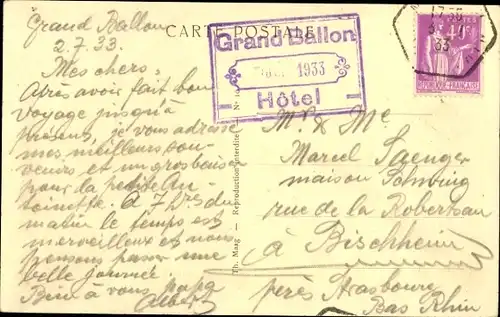 CARTE POSTALE
Grand Ballon
2.7.33.
Mes chers,
Après avoir fait bon
voyage jusqu'à
présent, je vous adresse
mes meilleurs sou-
venirs et un gros baiser
pour la petite An-
toinette. A 7 hrs du
matin le temps est
merveilleux et nous
pensons passer une
belle journée.
Bien à vous papa
Albert
Grand Ballon
1933
Hôtel
Th. Marg — Reproduction interdite
Mr & Me
Marcel Saenger
maison Schwing
rue de la Robertsau
à Bischheim
près Strasbourg
Bas Rhin
33
REPUBLIQUE FRANÇAISE